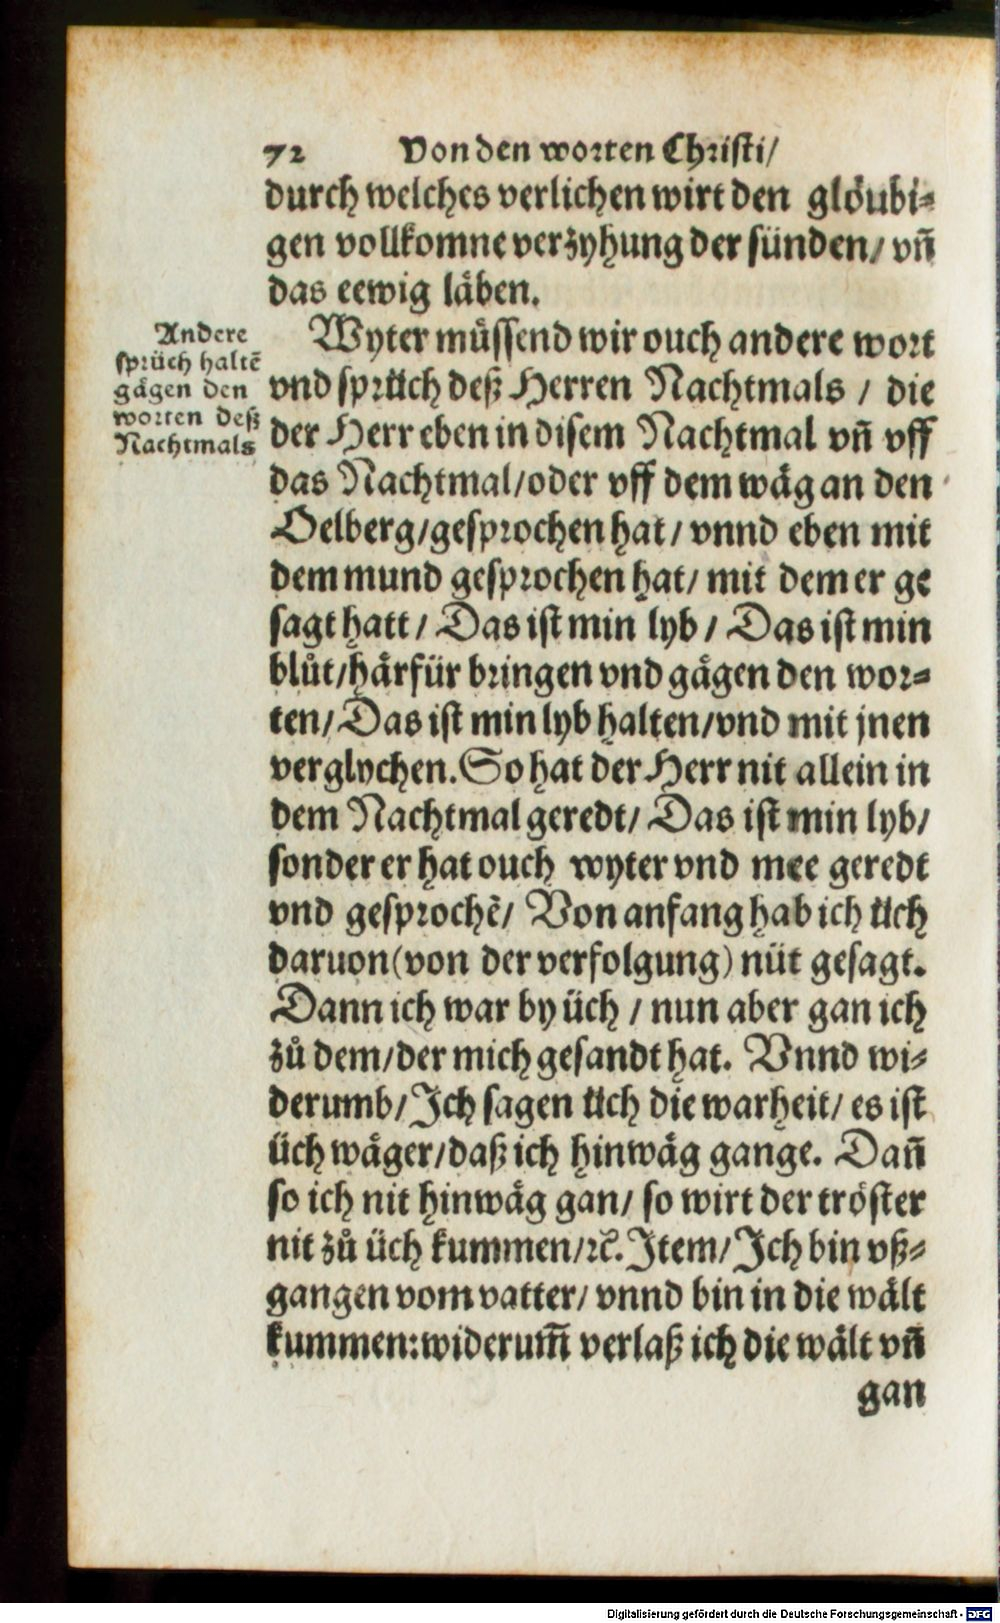 72 Von den worten Christi/
durch welches verlichen wirt den glöubi⸗
gen vollkomne verzyhung der sünden/ vñ
das eewig läben.
Andere
sprüch haltẽ
gägen den
worten deß
Nachtmals
Wyter müssend wir ouch andere wort
vnd sprüch deß Herren Nachtmals / die
der Herr eben in disem Nachtmal vñ vff
das Nachtmal/oder vff dem wäg an den
Oelberg/gesprochen hat/ vnnd eben mit
dem mund gesprochen hat/ mit dem er ge
sagt hatt/ Das ist min lyb / Das ist min
blůt/härfür bringen vnd gägen den wor⸗
ten/Das ist min lyb halten/vnd mit jnen
verglychen. So hat der Herr nit allein in
dem Nachtmal geredt/ Das ist min lyb/
sonder er hat ouch wyter vnd mee geredt
vnd gesprochẽ/ Von anfang hab ich üch
daruon(von der verfolgung) nüt gesagt.
Dann ich war by üch / nun aber gan ich
zů dem/der mich gesandt hat. Vnnd wi⸗
derumb/Ich sagen üch die warheit/ es ist
üch wäger/daß ich hinwäg gange. Dañ
so ich nit hinwäg gan/ so wirt der tröster
nit zů üch kummen/ꝛc. Item/Ich bin vß⸗
gangen vom vatter/ vnnd bin in die wält
kummen:widerum̃ verlaß ich die wält vñ
gan
Digitalisierung gefördert durch die Deutsche Forschungsgemeinschaft - DFG